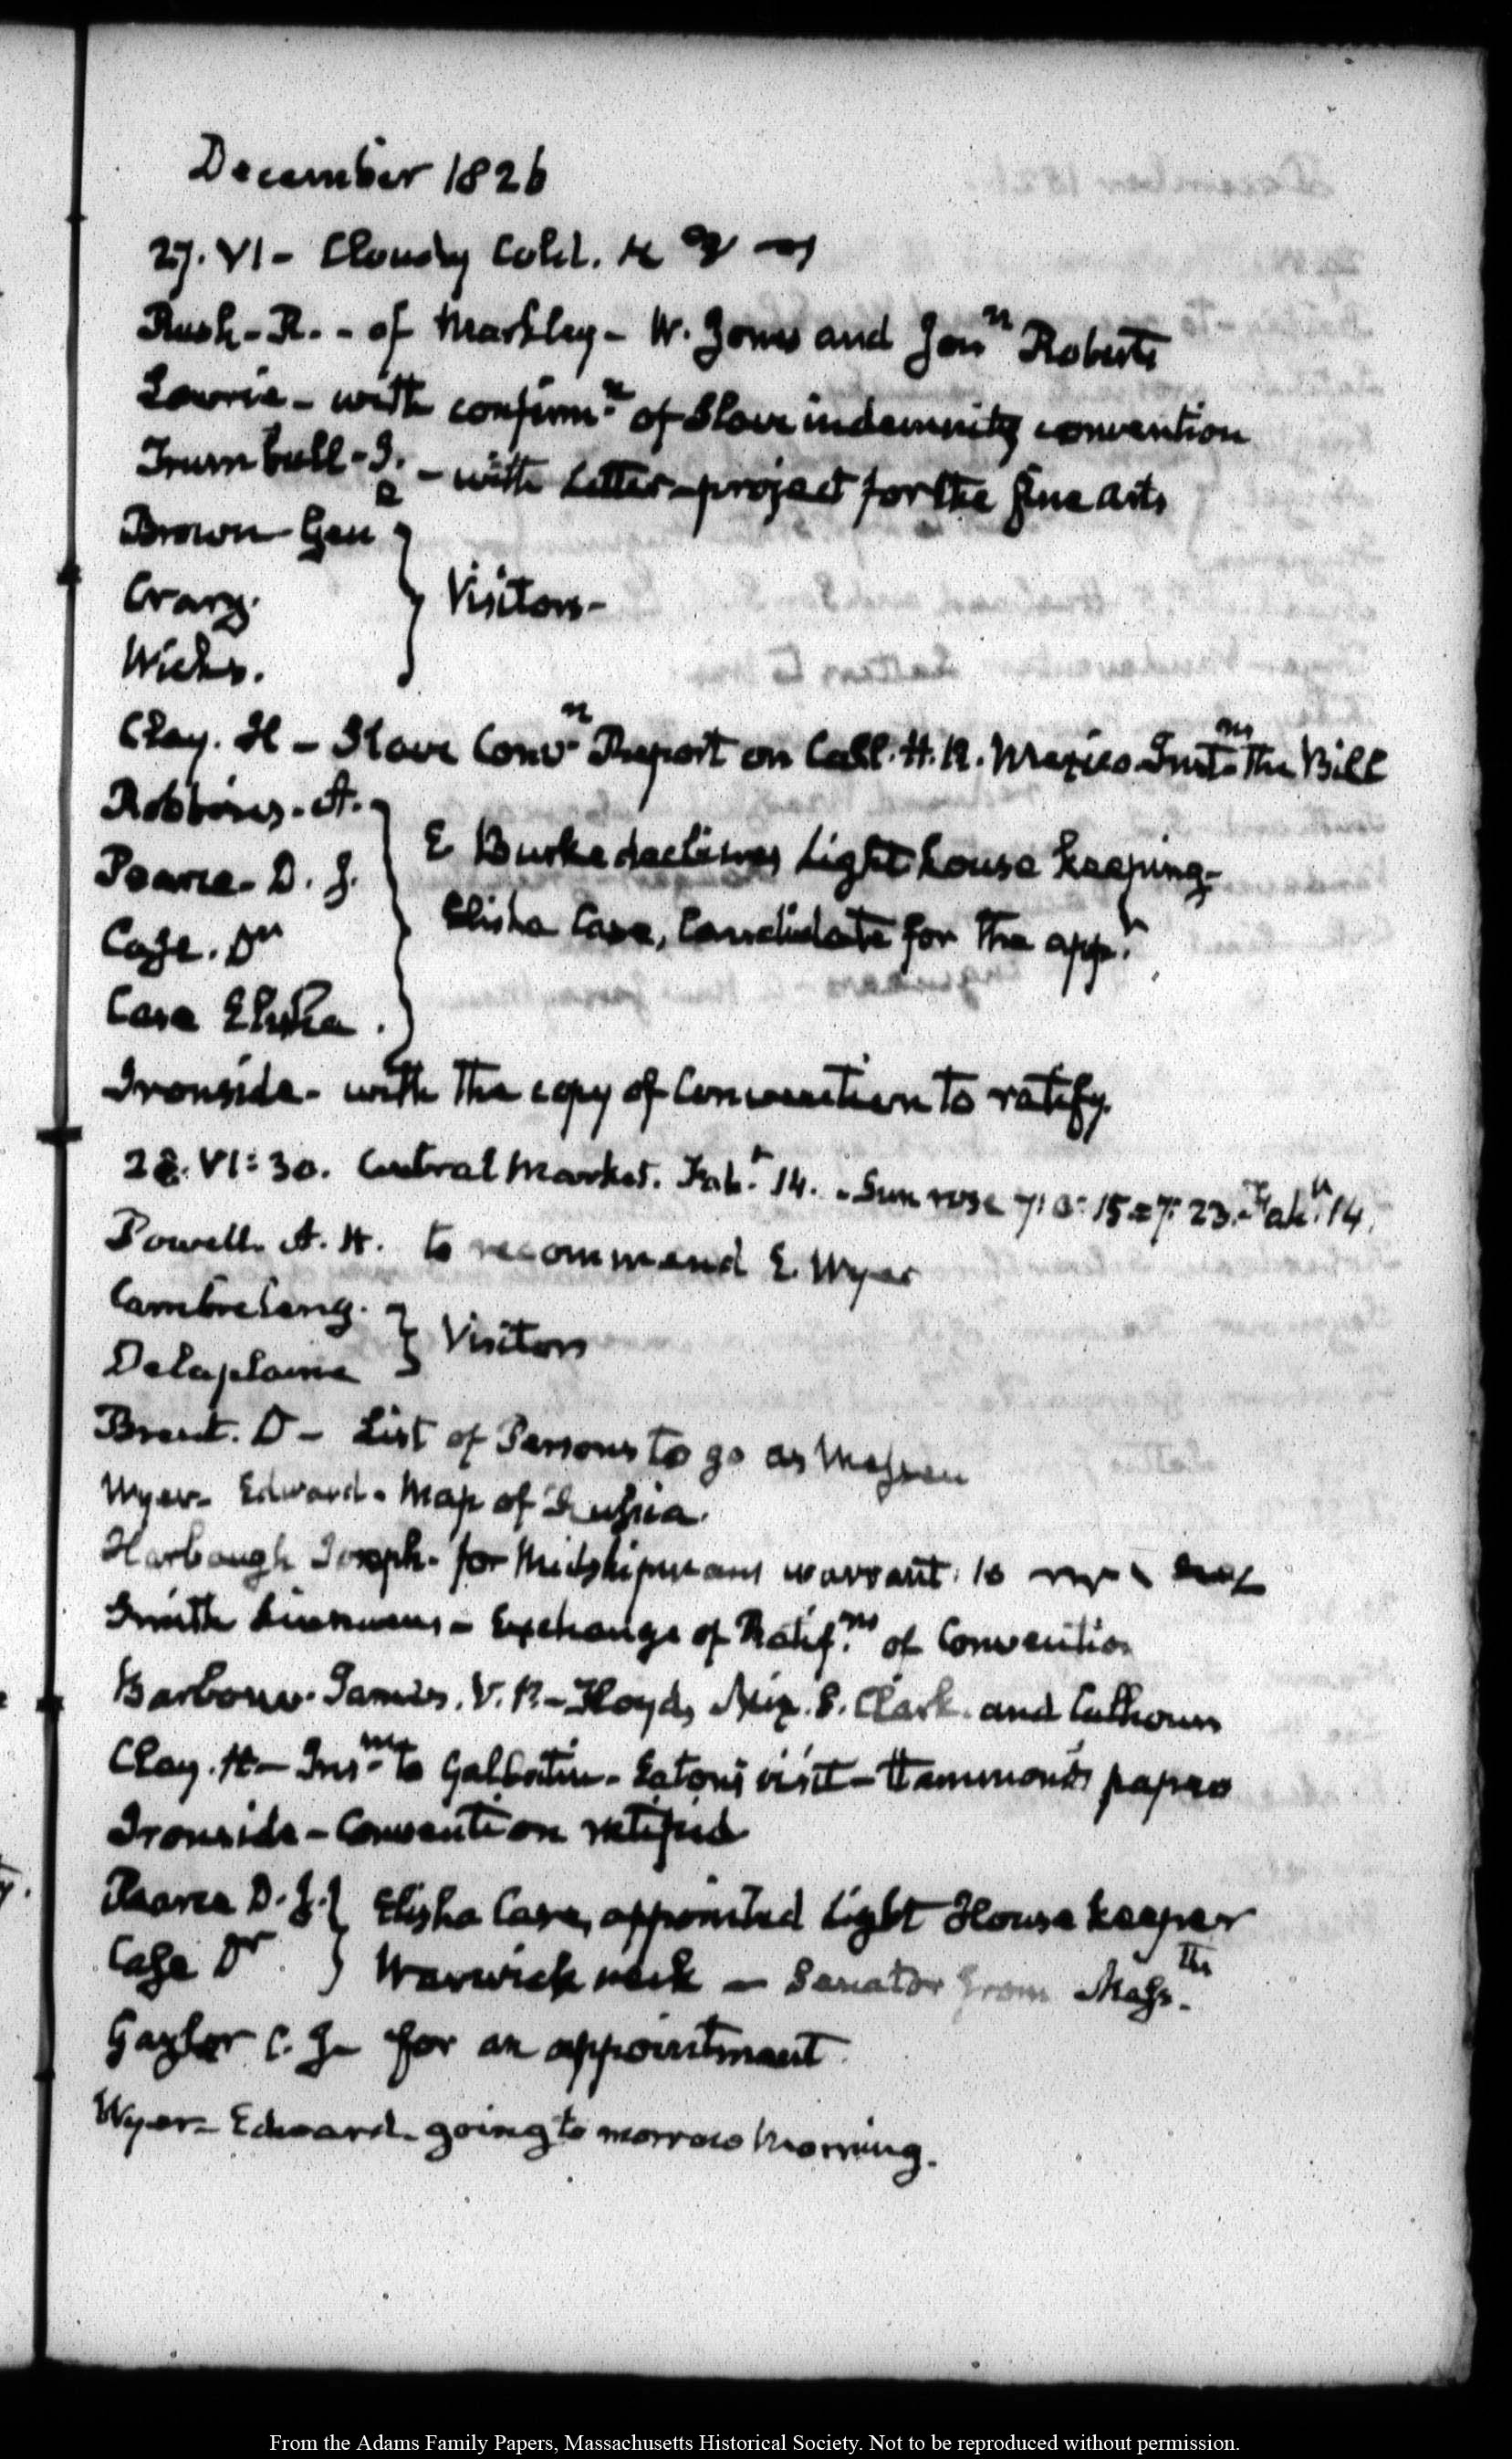 December 1826
27. VI - Cloudy Cold.
Rush - R. - of Markley - W. Jones and Jon.n Roberts
Lowrie - with confirm.n of Slave indemnity convention
Trumbull - J. - with Letter - project for the fine arts
Brown Gen
Crary.
Wicks.
Visitors -
Clay. H - Slave Conv.n Report on Call. H.R. Mexico Inst.ns The Bill
Robbins. A.
Pearce. D. J.
Case. Dr
Case Elisha.
E Burke declines Light house keeping -
Elisha Case, Candidate for the app.t
Ironside - with the copy of Convention to ratify.
28. VI:30. Central Market. Fah.t 14. - Sun rose 7:0:15 = 7:23. Fah.t 14.
Powell. A. H. to recommend E. Wyer
Cambreleng.
Delaplaine
Visitors
Brent. D - List of Persons to go as Messen
Wyer - Edward - Map of Russia.
Harbaugh Joseph - for Midshipmans warrant. to
Smith - Exchange of Ratif.ns of Convention
Barbour James. V. P. - Floyd, Mix. S. Clark. and Calhoun
Clay. H - Ins.ns to Gallatin - Eaton's visit - Hammond's papers
Ironside - Convention ratified
Pearce D. J.
Case Dr
Elisha Case, appointed Light House keeper
Warwick neck - Senator from Mass.tts
C. J - for an appointment.
Wyer - Edward - going to morrow Morning.
From the Adams Family Papers, Massachusetts Historical Society. Not to be reproduced without permission.